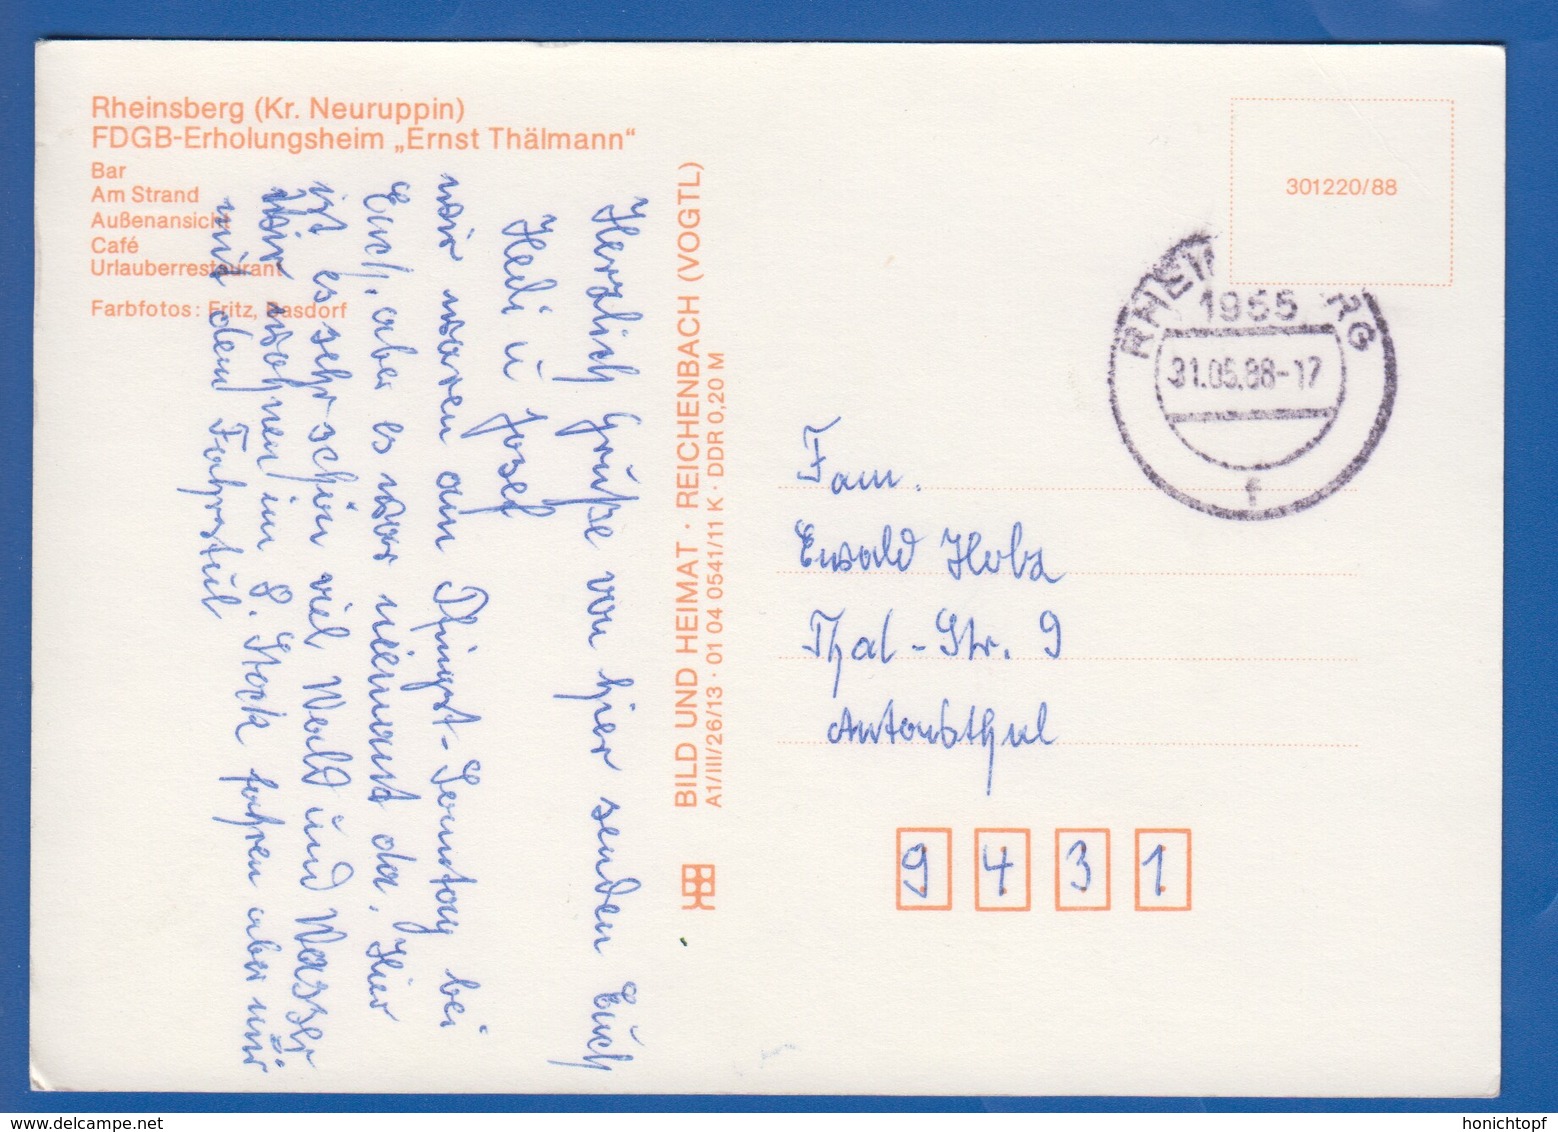 Rheinsberg (Kr. Neuruppin)
FDGB-Erholungsheim „Ernst Thälmann“
Bar
Am Strand
Außenansicht
Café
Urlauberrestaurant
Farbfotos: Fritz, Basdorf
Herzlich Grüße von hier senden Euch
Hedi u Josef
wir waren am Pfingst-Sonntag bei
Euch, aber es war niemand da. Hier
ist es sehr schön viel Wald und Wasser
Wir wohnen im 8. Stock fahren aber nur
mit dem Fahrstul
BILD UND HEIMAT · REICHENBACH (VOGTL)
A1/III/26/13 · 01 04 0541/11 K · DDR 0,20 M
301220/88
1955
31.05.88-17
f
Fam.
Ewald Hoba
Thal-Str. 9
Antonsthal
9 4 3 1
www.delcampe.net
honichtopf